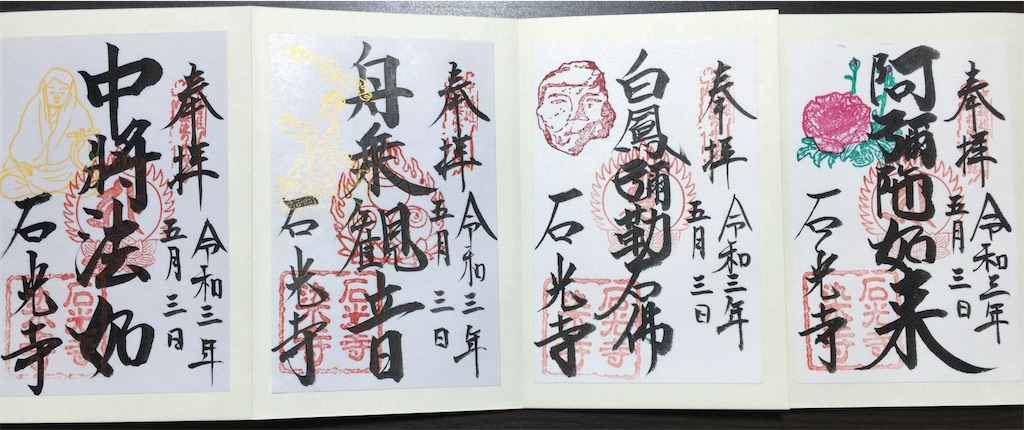 奉拝
令和三年
五月三日
阿彌陀如来
石光寺
石光寺
奉拝
令和三年
五月三日
白鳳彌勒石佛
石光寺
石光寺
奉拝
令和三年
五月三日
舟乗観音
石光寺
石光寺
奉拝
令和三年
五月三日
中将法如
石光寺
石光寺